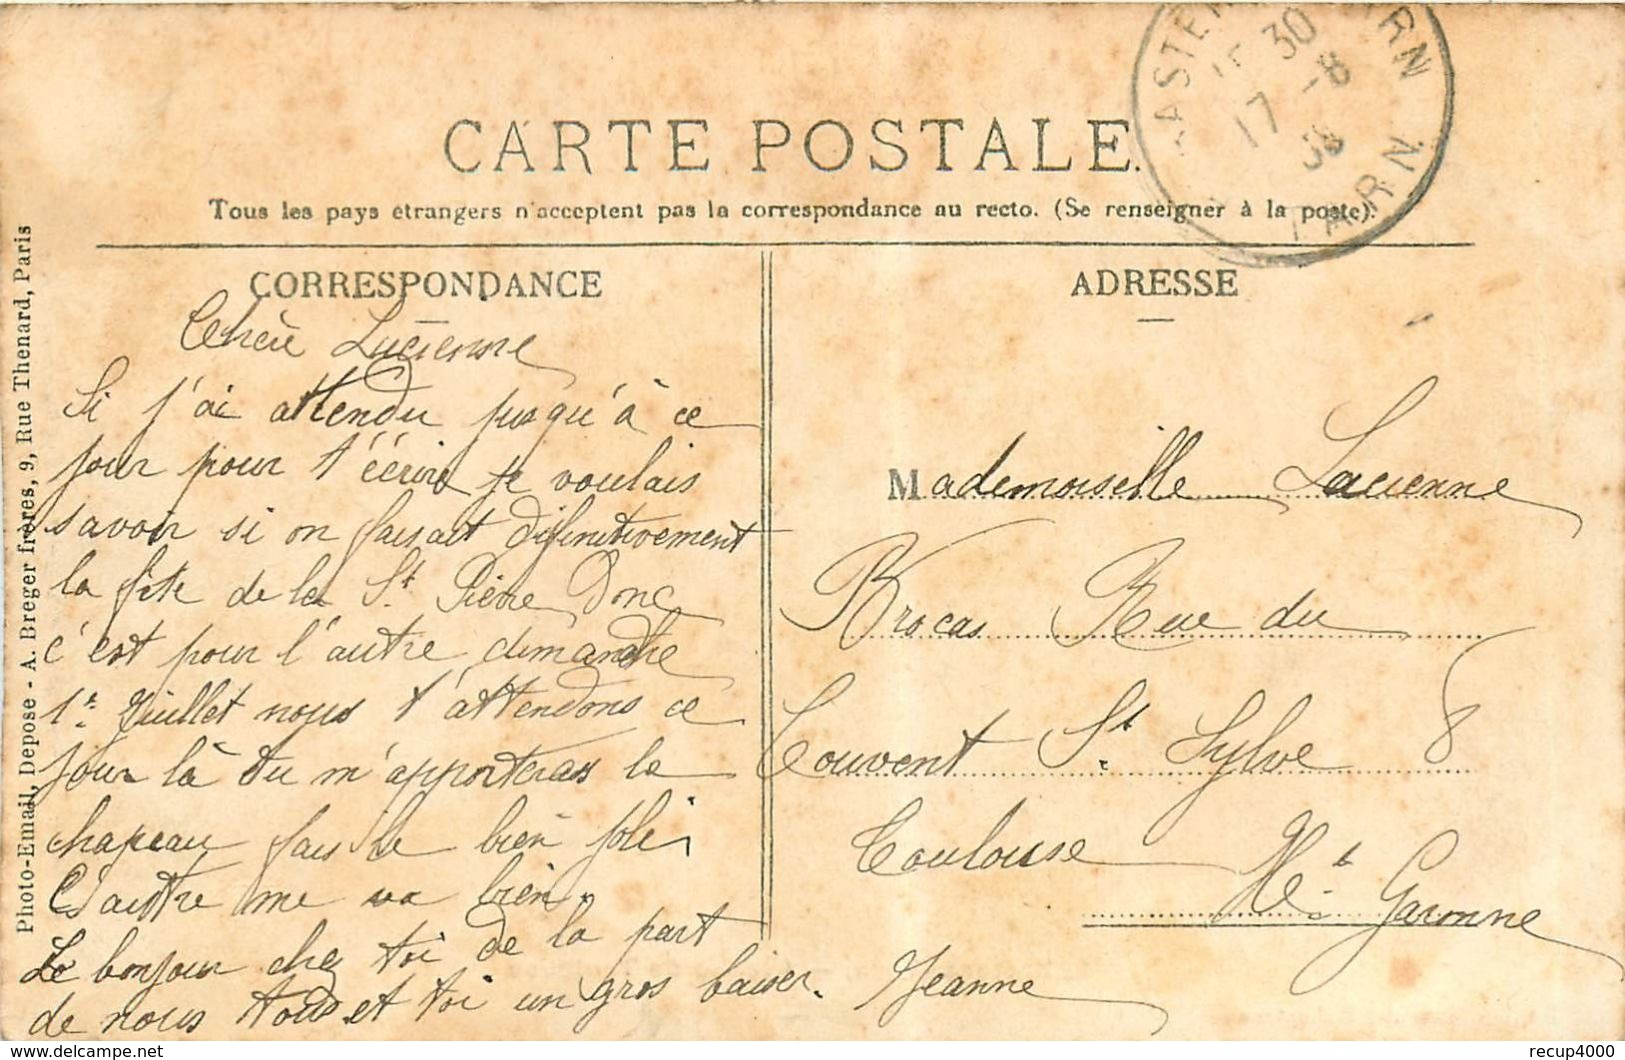 CARTE POSTALE.
30
17 -8
TARN
Tous les pays étrangers n'acceptent pas la correspondance au recto. (Se renseigner à la poste).
CORRESPONDANCE
Chère Lucienne
Si j'ai attendu jusqu'à ce
jour pour t'écrire je voulais
savoir si on faisait définitivement
la fête de la St Pierre Donc
c'est pour l'autre dimanche
1r Juillet nous t'attendons ce
jour là tu m'apporteras le
chapeau fais le bien joli
L'autre me va bien.
Le bonjour chez toi de la part
de nous tous et toi un gros baiser.
Jeanne
ADRESSE
Mademoiselle Lucienne
Brocas Rue du
Couvent St. Sylve 8
Toulouse
Hte. Garonne
Photo-Email, Déposé - A. Breger frères, 9, Rue Thenard, Paris
delcampe.net
recup4000